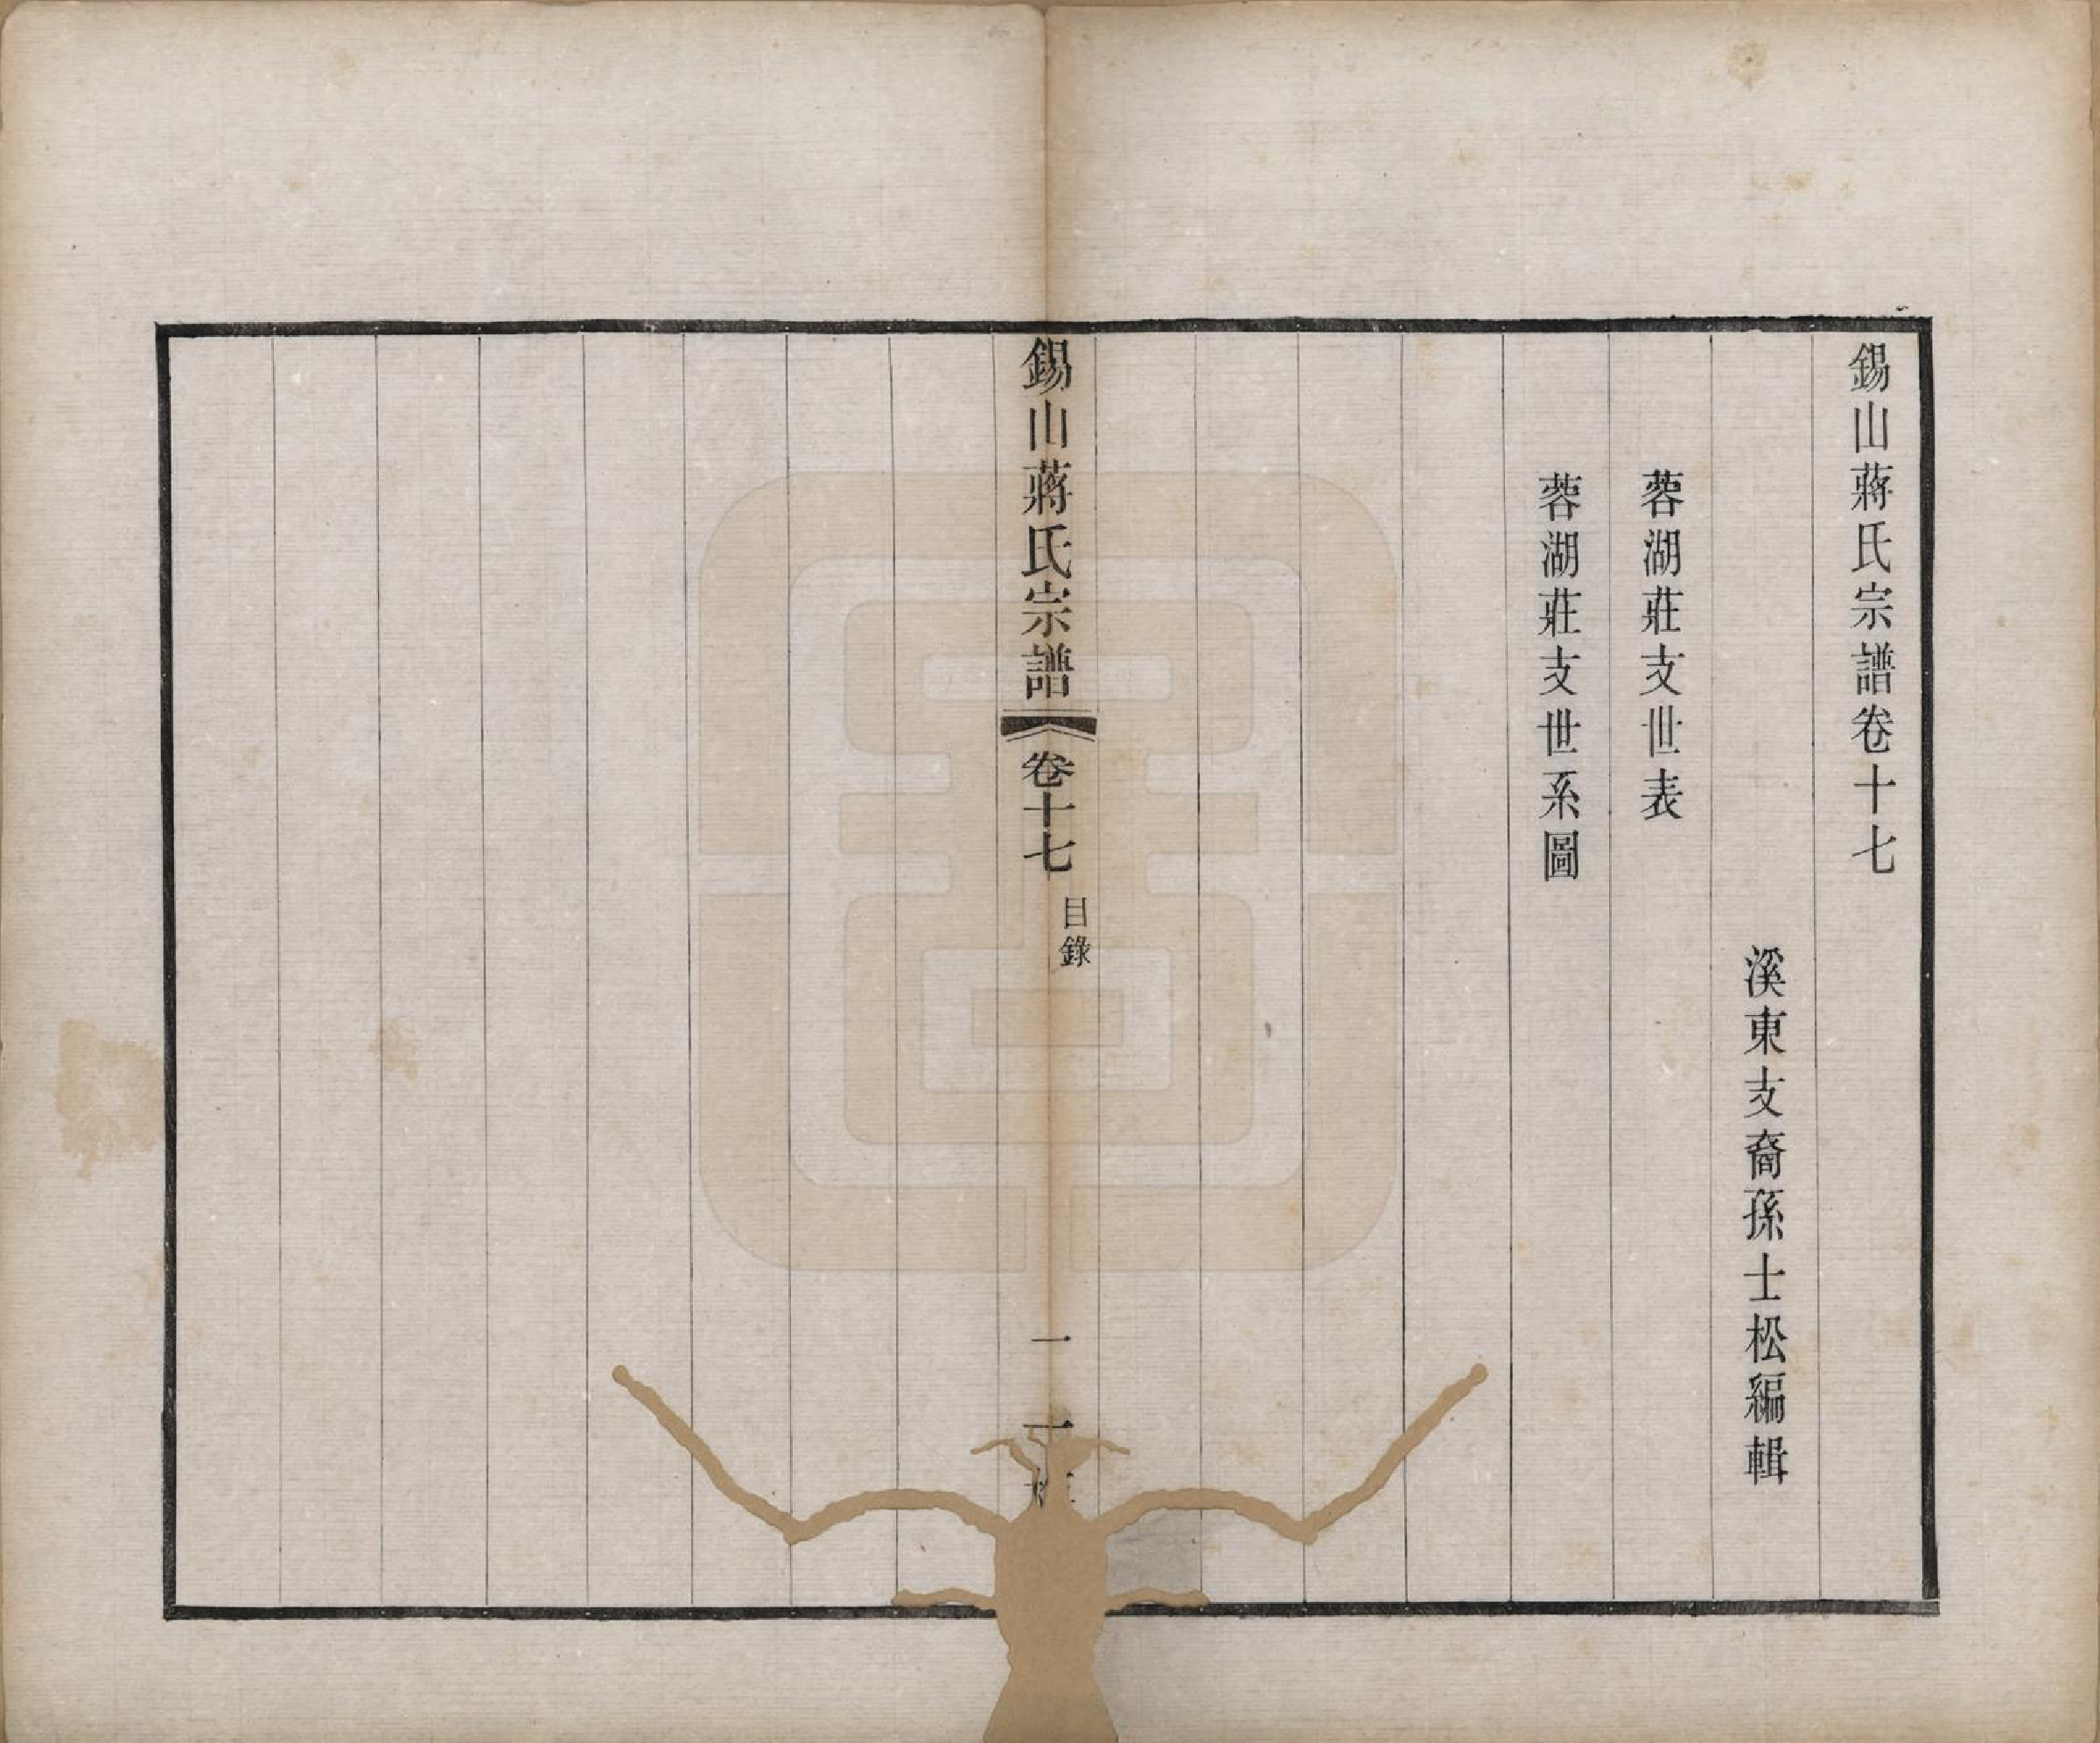 錫山蔣氏宗譜卷十七
溪東支裔孫士松編輯
蓉湖莊支世表
蓉湖莊支世系圖
錫山蔣氏宗譜
卷十七
目錄
一